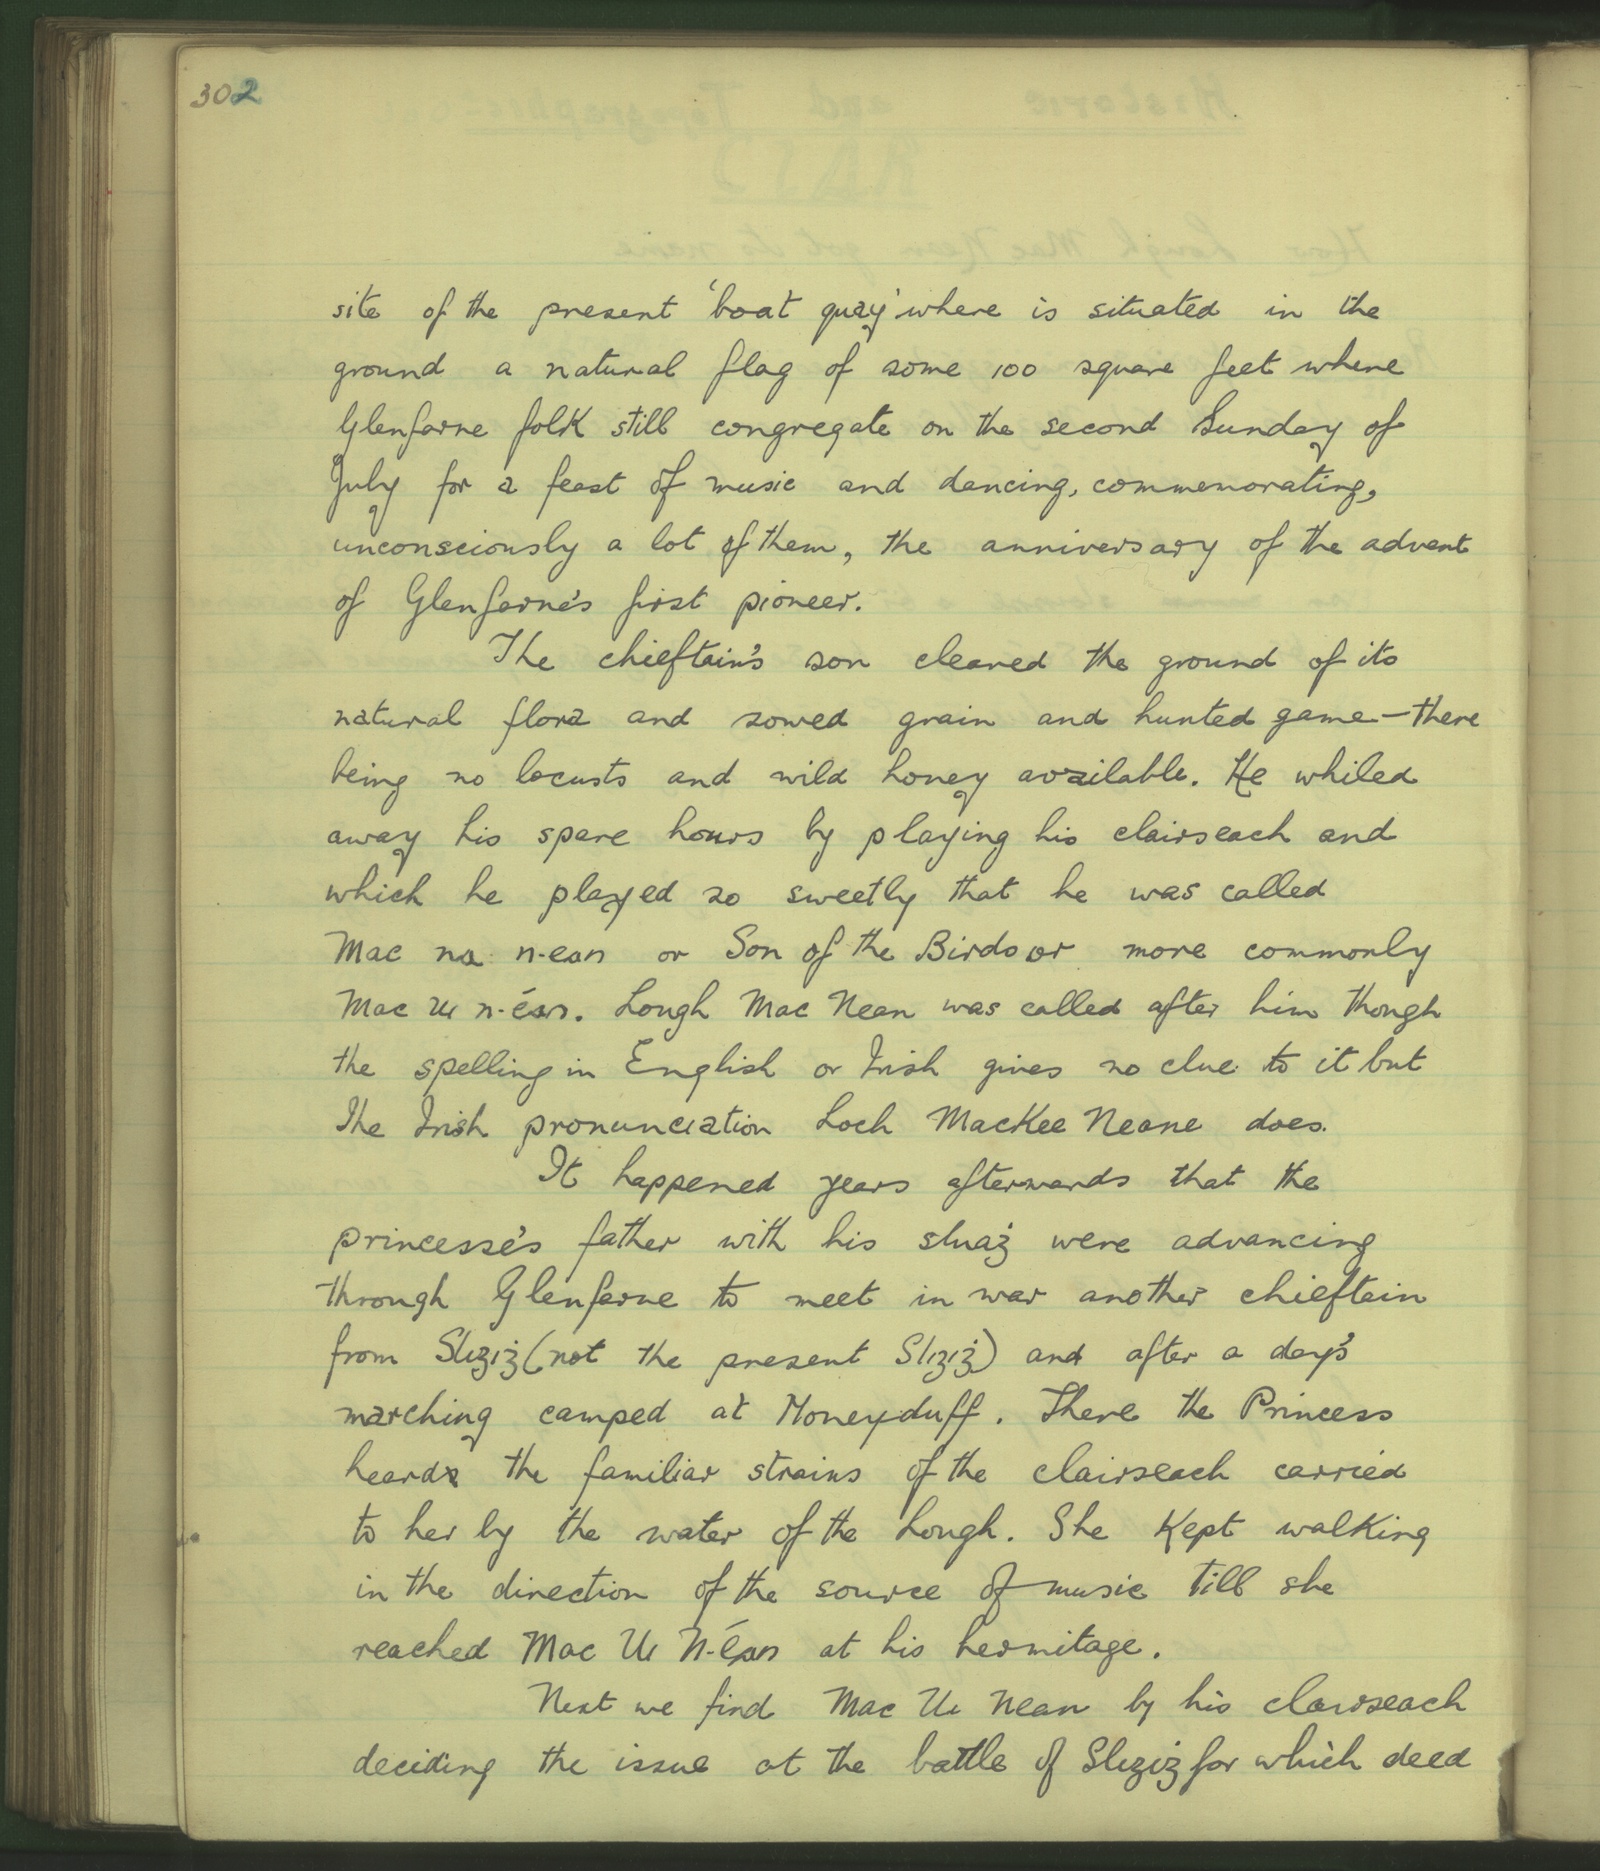 302
site of the present 'boat quay' where is situated in the
ground a natural flag of some 100 square feet where
Glenfarne folk still congregate on the second Sunday of
July for a feast of music and dancing, commemorating,
unconsciously a lot of them, the anniversary of the advent
of Glenfarne's first pioneer.
The chieftain's son cleared the ground of its
natural flora and sowed grain and hunted game — there
being no locusts and wild honey available. He whiled
away his spare hours by playing his clairseach and
which he played so sweetly that he was called
Mac na n-ean or Son of the Birds or more commonly
Mac Uí n-éan. Lough Mac Nean was called after him though
the spelling in English or Irish gives no clue to it but
the Irish pronunciation Loch MacKee Neane does.
It happened years afterwards that the
princesse's father with his sluaġ were advancing
through Glenfarne to meet in war another chieftain
from Sligiġ (not the present Sligiġ) and after a day's
marching camped at Moneyduff. There the Princess
heard the familiar strains of the clairseach carried
to her by the water of the Lough. She kept walking
in the direction of the source of music till she
reached Mac Uí N-éan at his hermitage.
Next we find Mac Uí Nean by his clairseach
deciding the issue at the battle of Sligiġ for which deed